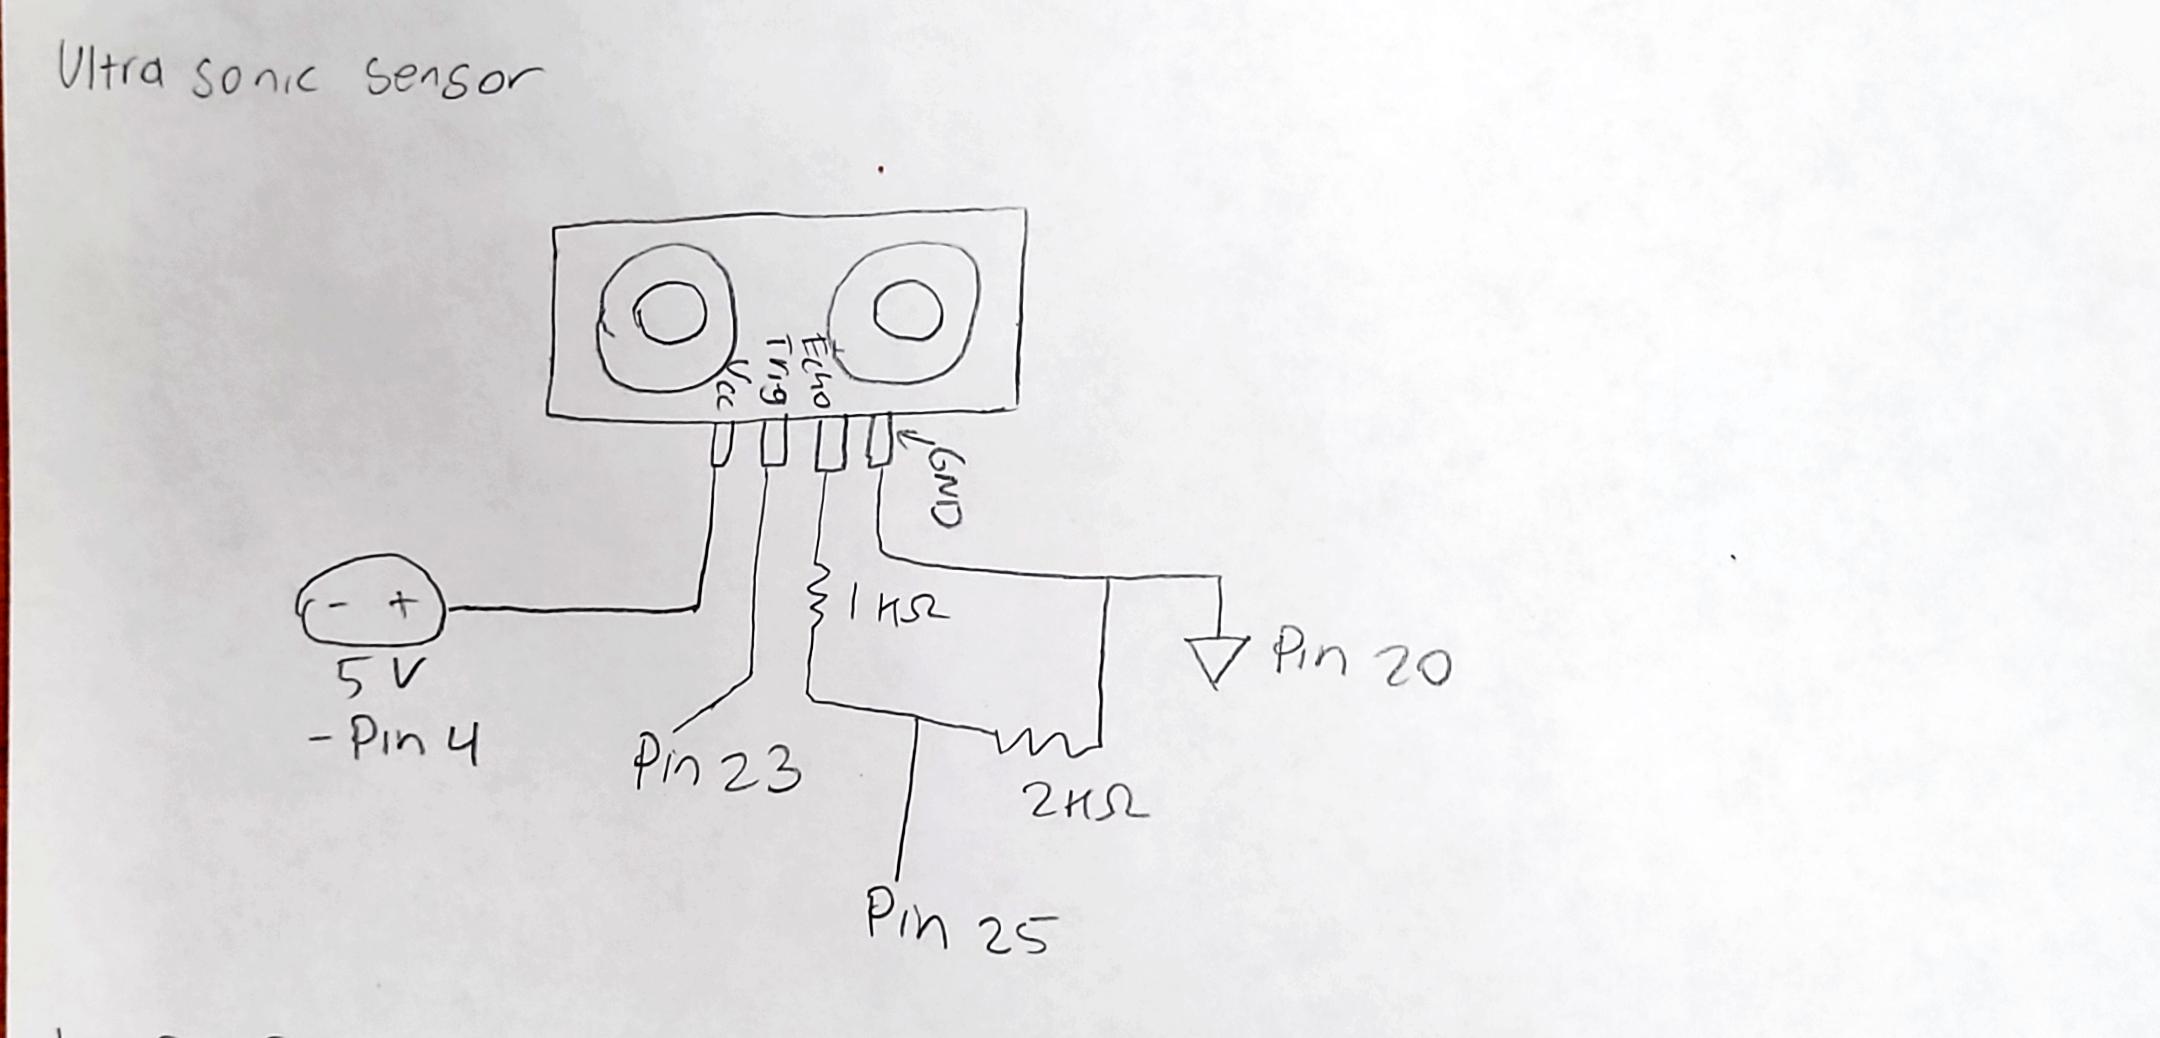 Ultra sonic sensor
Vcc
Trig
Echo
GND
- +
5 V
- Pin 4
Pin 23
1 KΩ
2KΩ
Pin 20
Pin 25